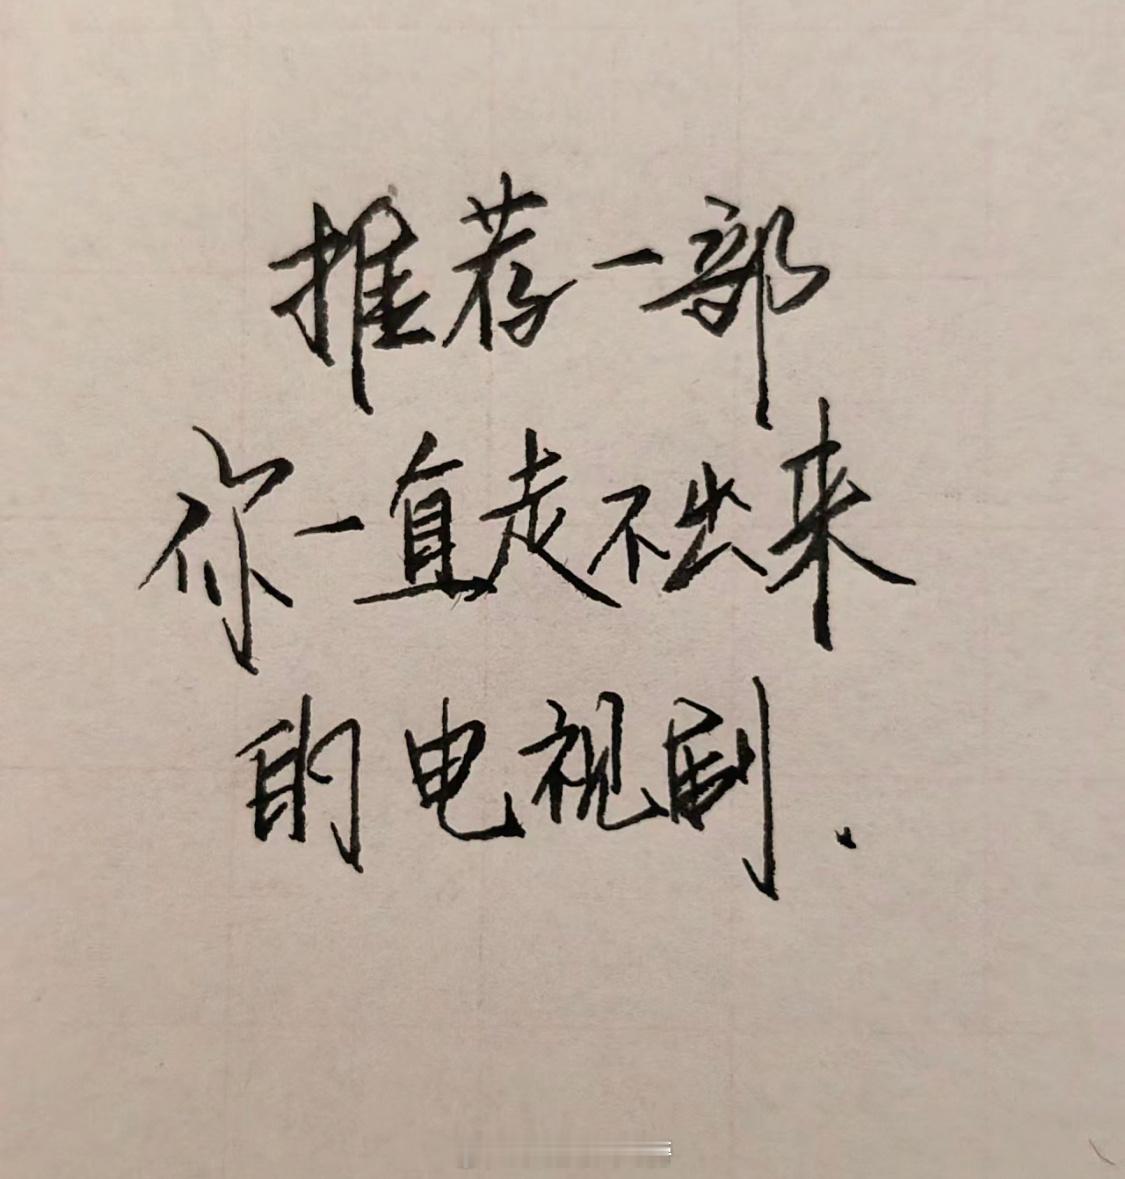 推荐一部
你一直走不出来
的电视剧.